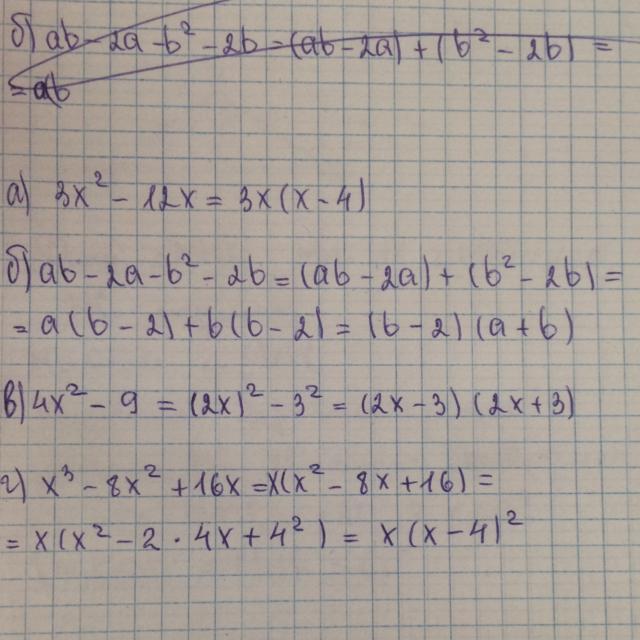 б) ab - 2a - b² - 2b = (ab - 2a) + (b² - 2b) =
= ab
а) 3x² - 12x = 3x(x - 4)
б) ab - 2a - b² - 2b = (ab - 2a) + (b² - 2b) =
= a(b - 2) + b(b - 2) = (b - 2) (a + b)
в) 4x² - 9 = (2x)² - 3² = (2x - 3) (2x + 3)
г) x³ - 8x² + 16x = x(x² - 8x + 16) =
= x(x² - 2 · 4x + 4²) = x(x - 4)²